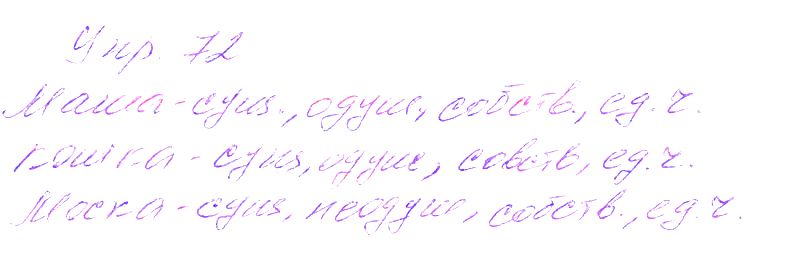 Упр. 72
Маша - сущ., одуш, собств., ед. ч.
кошка - сущ, одуш, собств, ед. ч.
Моска - сущ, неодуш, собств., ед. ч.